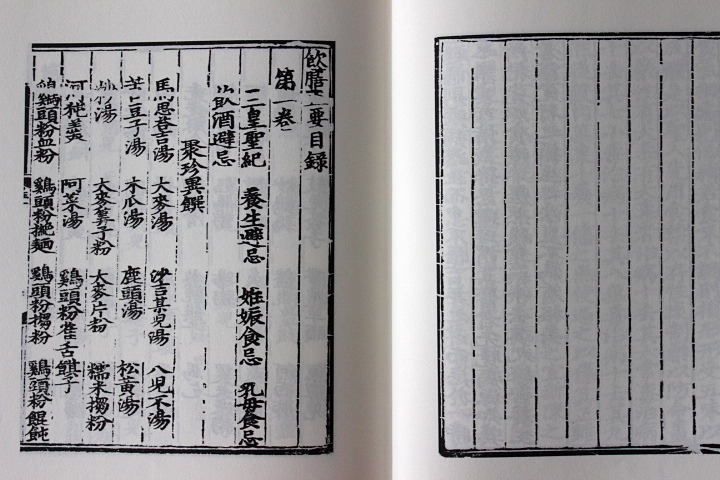 飲膳正要目録
第一卷
三皇聖紀 養生避忌 妊娠食忌 乳母食忌
飲酒避忌
聚珍異饌
馬思荅吉湯 大麥湯 沙乞某兒湯 八兒不湯
豆子湯 木瓜湯 鹿頭湯 松黃湯
湯 大麥筭子粉 大麥片粉 糯米搊粉
河㹠羹 阿菜湯 鷄頭粉雀舌餺子
鷄頭粉血粉 鷄頭粉撧麵 鷄頭粉搊粉 鷄頭粉餛飩